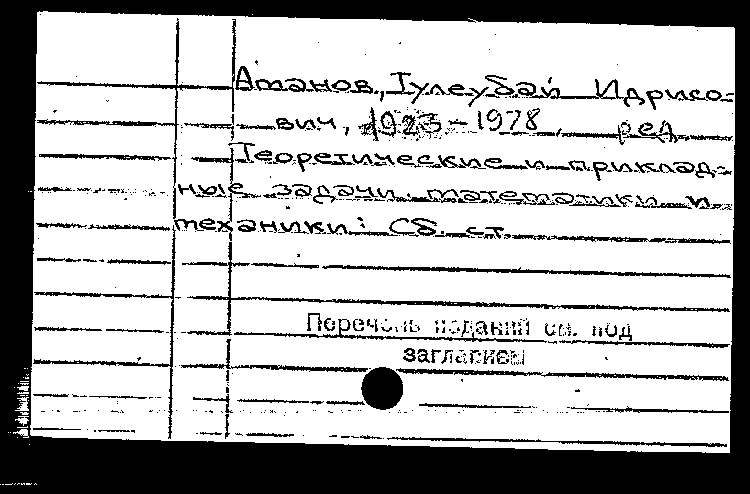 Аманов, Тулеубай Идрисо-
вич, 1923-1978, ред.
Теоретические и приклад-
ные задачи математики и
механики: Сб. ст.
Перечень изданий см. под
заглавием